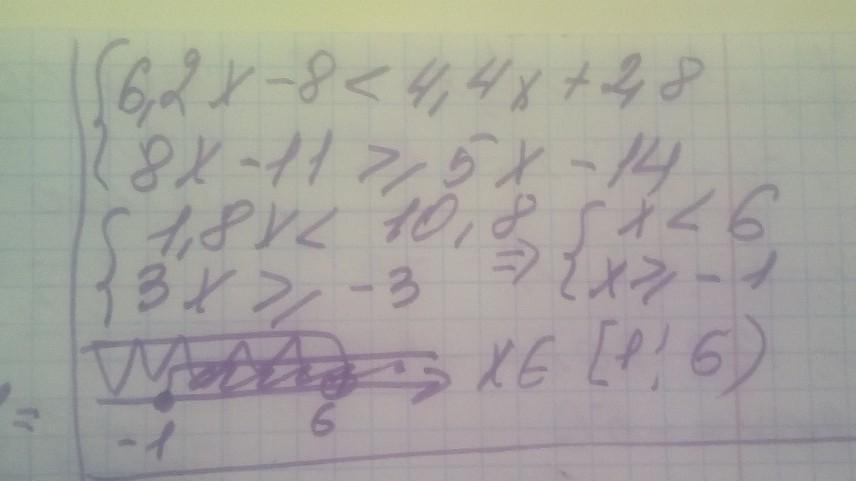 {6,2x - 8 < 4,4x + 2,8
{8x - 11 ≥ 5x - 14
{1,8x < 10,8 => {x < 6
{3x ≥ -3 {x ≥ -1
x ∈ [1; 6)
-1 6
=